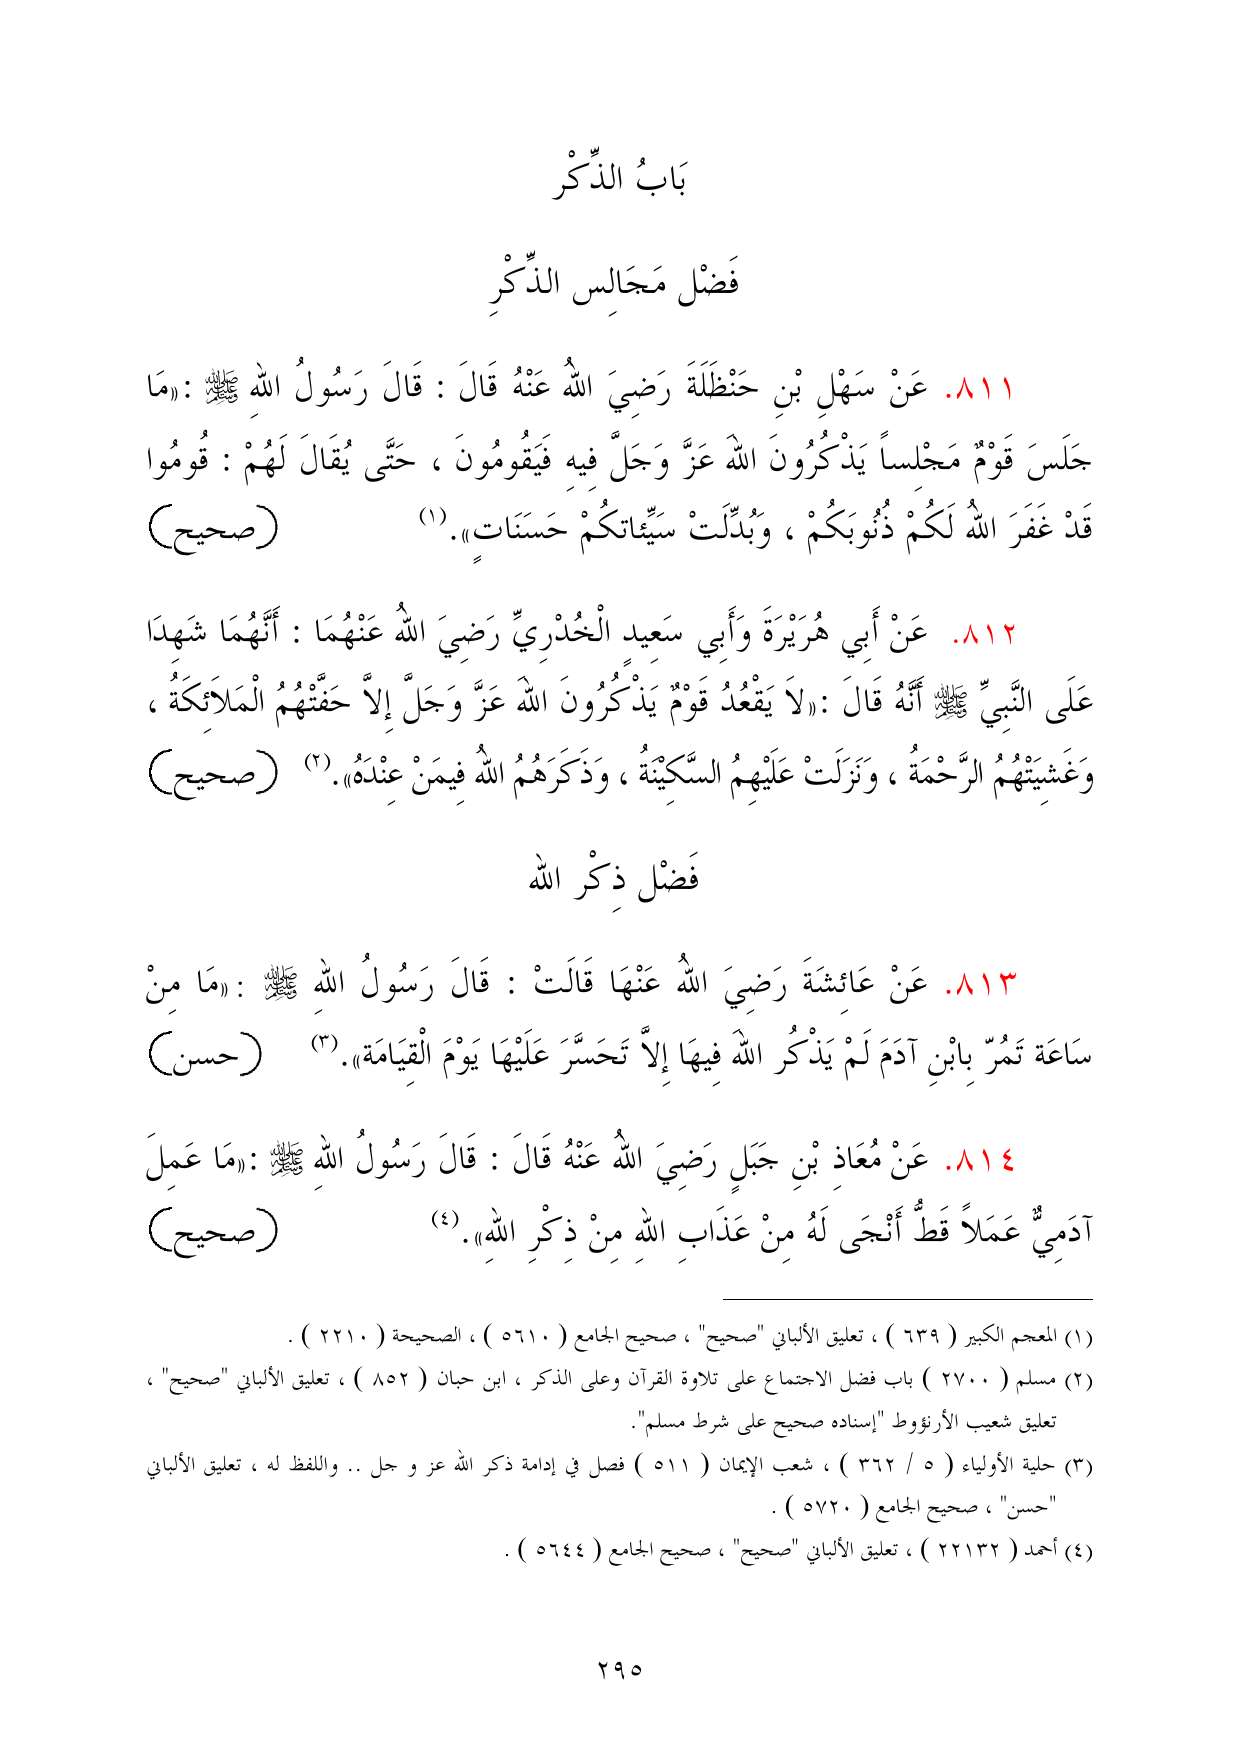 بَابُ الذِّكْر
فَضْل مَجَالِس الذِّكْرِ
٨١١. عَنْ سَهْلِ بْنِ حَنْظَلَةَ رَضِيَ اللهُ عَنْهُ قَالَ : قَالَ رَسُولُ اللهِ ﷺ :«مَا
جَلَسَ قَوْمٌ مَجْلِساً يَذْكُرُونَ اللهَ عَزَّ وَجَلَّ فِيهِ فَيَقُومُونَ ، حَتَّى يُقَالَ لَهُمْ : قُومُوا
قَدْ غَفَرَ اللهُ لَكُمْ ذُنُوبَكُمْ ، وَبُدِّلَتْ سَيِّئَاتكُمْ حَسَنَاتٍ».(١) (صحيح)
٨١٢. عَنْ أَبِي هُرَيْرَةَ وَأَبِي سَعِيدٍ الْخُدْرِيِّ رَضِيَ اللهُ عَنْهُمَا : أَنَّهُمَا شَهِدَا
عَلَى النَّبِيِّ ﷺ أَنَّهُ قَالَ :«لاَ يَقْعُدُ قَوْمٌ يَذْكُرُونَ اللهَ عَزَّ وَجَلَّ إِلاَّ حَفَّتْهُمُ الْمَلاَئِكَةُ ،
وَغَشِيَتْهُمُ الرَّحْمَةُ ، وَنَزَلَتْ عَلَيْهِمُ السَّكِيْنَةُ ، وَذَكَرَهُمُ اللهُ فِيمَنْ عِنْدَهُ».(٢) (صحيح)
فَضْل ذِكْر الله
٨١٣. عَنْ عَائِشَةَ رَضِيَ اللهُ عَنْهَا قَالَتْ : قَالَ رَسُولُ اللهِ ﷺ :«مَا مِنْ
سَاعَة تَمُرّ بِابْنِ آدَمَ لَمْ يَذْكُر اللهَ فِيهَا إِلاَّ تَحَسَّرَ عَلَيْهَا يَوْمَ الْقِيَامَة».(٣) (حسن)
٨١٤. عَنْ مُعَاذِ بْنِ جَبَلٍ رَضِيَ اللهُ عَنْهُ قَالَ : قَالَ رَسُولُ اللهِ ﷺ :«مَا عَمِلَ
آدَمِيٌّ عَمَلاً قَطُّ أَنْجَى لَهُ مِنْ عَذَابِ اللهِ مِنْ ذِكْرِ اللهِ».(٤) (صحيح)
(١) المعجم الكبير ( ٦٣٩ ) ، تعليق الألباني "صحيح" ، صحيح الجامع ( ٥٦١٠ ) ، الصحيحة ( ٢٢١٠ ) .
(٢) مسلم ( ٢٧٠٠ ) باب فضل الاجتماع على تلاوة القرآن وعلى الذكر ، ابن حبان ( ٨٥٢ ) ، تعليق الألباني "صحيح" ،
تعليق شعيب الأرنؤوط "إسناده صحيح على شرط مسلم".
(٣) حلية الأولياء ( ٥ / ٣٦٢ ) ، شعب الإيمان ( ٥١١ ) فصل في إدامة ذكر الله عز و جل .. واللفظ له ، تعليق الألباني
"حسن" ، صحيح الجامع ( ٥٧٢٠ ) .
(٤) أحمد ( ٢٢١٣٢ ) ، تعليق الألباني "صحيح" ، صحيح الجامع ( ٥٦٤٤ ) .
٢٩٥